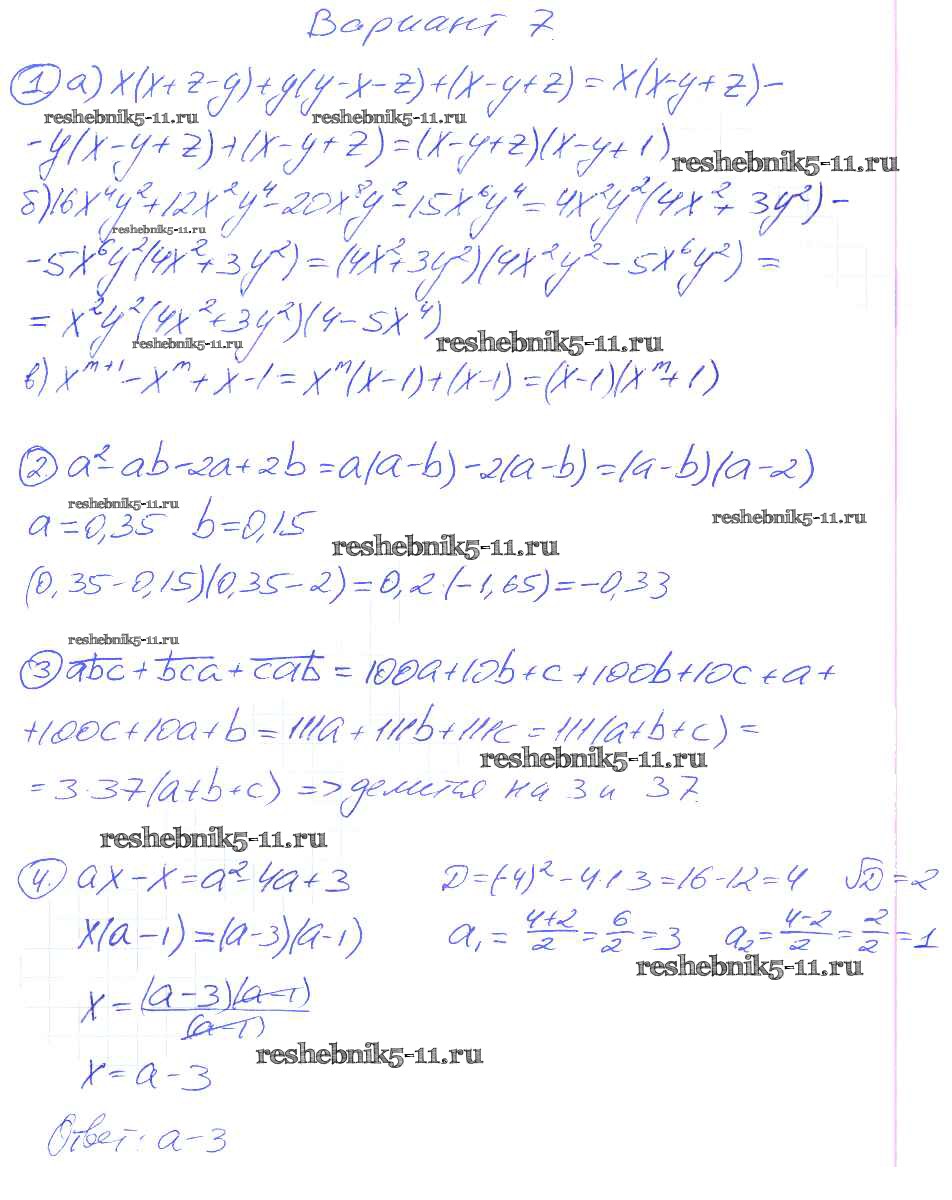 Вариант 7
1) а) x(x+z-y)+y(y-x-z)+(x-y+z)=x(x-y+z)-
reshebnik5-11.ru reshebnik5-11.ru
-y(x-y+z)+(x-y+z)=(x-y+z)(x-y+1)
reshebnik5-11.ru
б) 16x⁴y²+12x²y⁴-20x⁸y²-15x⁶y⁴=4x²y²(4x²+3y²)-
reshebnik5-11.ru
-5x⁶y²(4x²+3y²)=(4x²+3y²)(4x²y²-5x⁶y²)=
=x²y²(4x²+3y²)(4-5x⁴)
reshebnik5-11.ru reshebnik5-11.ru
в) xᵐ⁺¹-xᵐ+x-1=xᵐ(x-1)+(x-1)=(x-1)(xᵐ+1)
2) a²-ab-2a+2b=a(a-b)-2(a-b)=(a-b)(a-2)
reshebnik5-11.ru
a=0,35 b=0,15
reshebnik5-11.ru
reshebnik5-11.ru
(0,35-0,15)(0,35-2)=0,2·(-1,65)=-0,33
reshebnik5-11.ru
3) a̅b̅c̅+b̅c̅a̅+c̅a̅b̅=100a+10b+c+100b+10c+a+
+100c+10a+b=111a+111b+111c=111(a+b+c)=
reshebnik5-11.ru
=3·37(a+b+c) => делится на 3 и 37.
reshebnik5-11.ru
4. ax-x=a²-4a+3 D=(-4)²-4·1·3=16-12=4 √D=2
x(a-1)=(a-3)(a-1) a₁=(4+2)/2=6/2=3 a₂=(4-2)/2=2/2=1
reshebnik5-11.ru
x=(a-3)(a-1)/(a-1)
reshebnik5-11.ru
x=a-3
Ответ: a-3